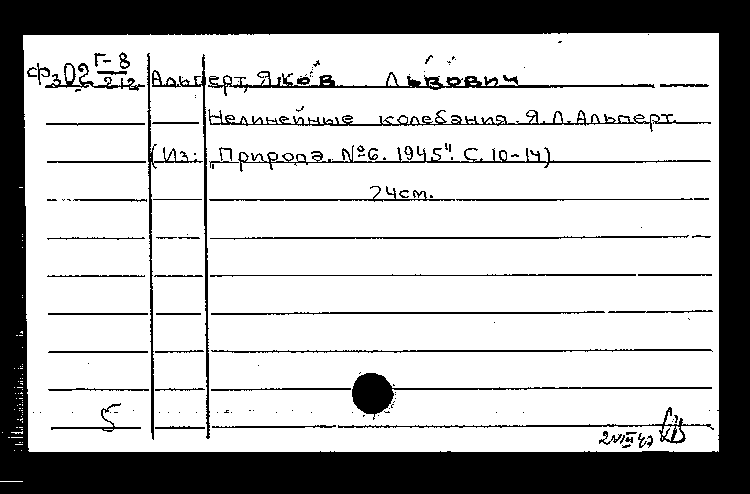 Фз02 Г-8/212 Альперт, Яков Львович
Нелинейные колебания. Я.Л.Альперт.
(Из: „Природа. №6. 1945". С. 10-14)
24см.
5
2 VIII 47